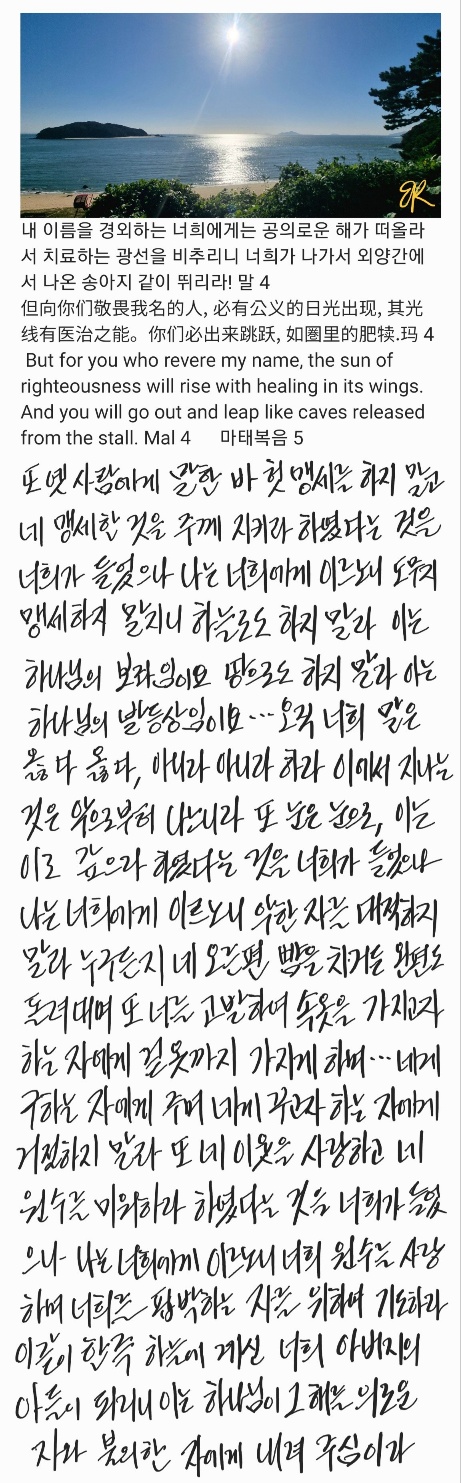 JR
내 이름을 경외하는 너희에게는 공의로운 해가 떠올라
서 치료하는 광선을 비추리니 너희가 나가서 외양간에
서 나온 송아지 같이 뛰리라! 말 4
但向你们敬畏我名的人, 必有公义的日光出现, 其光
线有医治之能。你们必出来跳跃, 如圈里的肥犊.玛 4
But for you who revere my name, the sun of
righteousness will rise with healing in its wings.
And you will go out and leap like caves released
from the stall. Mal 4 마태복음 5
또 옛 사람에게 말한 바 헛 맹세를 하지 말고
네 맹세한 것을 주께 지키라 하였다는 것을
너희가 들었으나 나는 너희에게 이르노니 도무지
맹세하지 말지니 하늘로도 하지 말라 이는
하나님의 보좌임이요 땅으로도 하지 말라 이는
하나님의 발등상임이요…오직 너희 말은
옳다 옳다, 아니라 아니라 하라 이에서 지나는
것은 악으로부터 나느니라 또 눈은 눈으로, 이는
이로 갚으라 하였다는 것을 너희가 들었으나
나는 너희에게 이르노니 악한 자를 대적하지
말라 누구든지 네 오른편 뺨을 치거든 왼편도
돌려대며 또 너를 고발하여 속옷을 가지고자
하는 자에게 겉옷까지 가지게 하며…네게
구하는 자에게 주며 네게 꾸고자 하는 자에게
거절하지 말라 또 네 이웃을 사랑하고 네
원수를 미워하라 하였다는 것을 너희가 들었
으나 나는 너희에게 이르노니 너희 원수를 사랑
하며 너희를 핍박하는 자를 위하여 기도하라
이같이 한즉 하늘에 계신 너희 아버지의
아들이 되리니 이는 하나님이 그 해를 의로운
자와 불의한 자에게 내려 주심이라